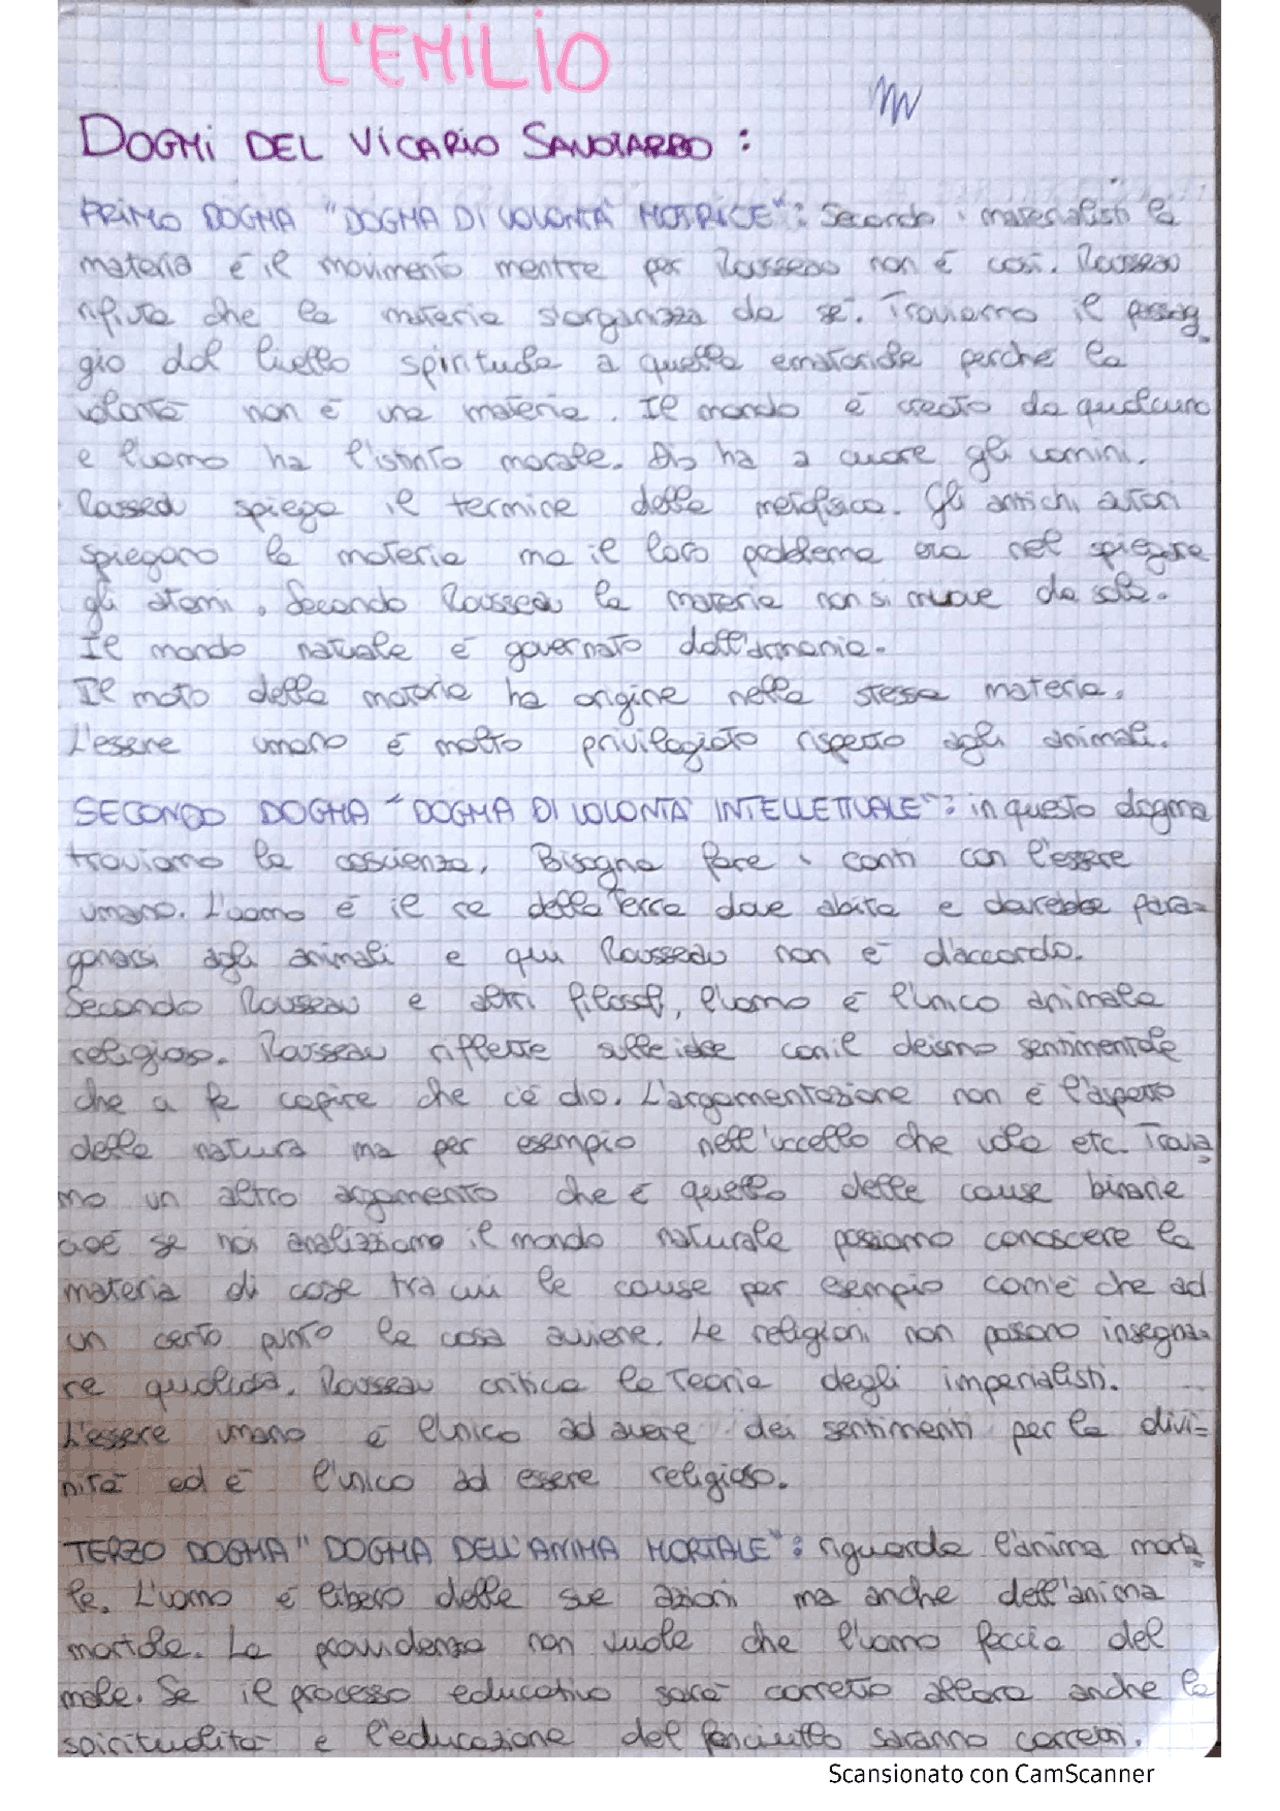 L'EMILIO
DOGMI DEL VICARIO SAVOIARDO :
PRIMO DOGMA "DOGMA DI VOLONTÀ MOTRICE": Secondo i materialisti la
materia è il movimento mentre per Rousseau non è così. Rousseau
rifiuta che la materia s'organizza da sé. Troviamo il passag
gio dal livello spirituale a quello ematoriale perché la
volontà non è una materia. Il mondo è creato da qualcuno
e l'uomo ha l'istinto morale. Dio ha a cuore gli uomini.
Rousseau spiega il termine della metafisica. Gli antichi autori
spiegano la materia ma il loro problema era nel spiegare
gli atomi, Secondo Rousseau la materia non si muove da sola.
Il mondo naturale è governato dall'armonia.
Il moto della materia ha origine nella stessa materia.
L'essere umano è molto privilegiato rispetto agli animali.
SECONDO DOGMA "DOGMA DI VOLONTÀ INTELLETTUALE": in questo dogma
troviamo la coscienza. Bisogna fare i conti con l'essere
umano. L'uomo è il re della Terra dove abita e dovrebbe para-
gonarsi agli animali e qui Rousseau non è d'accordo.
Secondo Rousseau e altri filosofi, l'uomo è l'unico animale
religioso. Rousseau riflette sulle idee con il deismo sentimentale
che a fa capire che c'è dio. L'argomentazione non è l'aspetto
della natura ma per esempio nell'uccello che vola etc. Trovia
mo un altro argomento che è quello delle cause binarie
cioè se noi analizziamo il mondo naturale possiamo conoscere la
materia di cose tra cui le cause per esempio com'è che ad
un certo punto la cosa avviene. Le religioni non possono insegna-
re qualcosa. Rousseau critica la Teoria degli imperialisti.
L'essere umano è l'unico ad avere dei sentimenti per la divi-
nità ed è l'unico ad essere religioso.
TERZO DOGMA "DOGMA DELL'ANIMA MORTALE": riguarda l'anima morta
le. L'uomo è libero delle sue azioni ma anche dell'anima
mortale. La provvidenza non vuole che l'uomo faccia del
male. Se il processo educativo sarà corretto allora anche la
spiritualità e l'educazione del fanciullo saranno corretti.
Scansionato con CamScanner